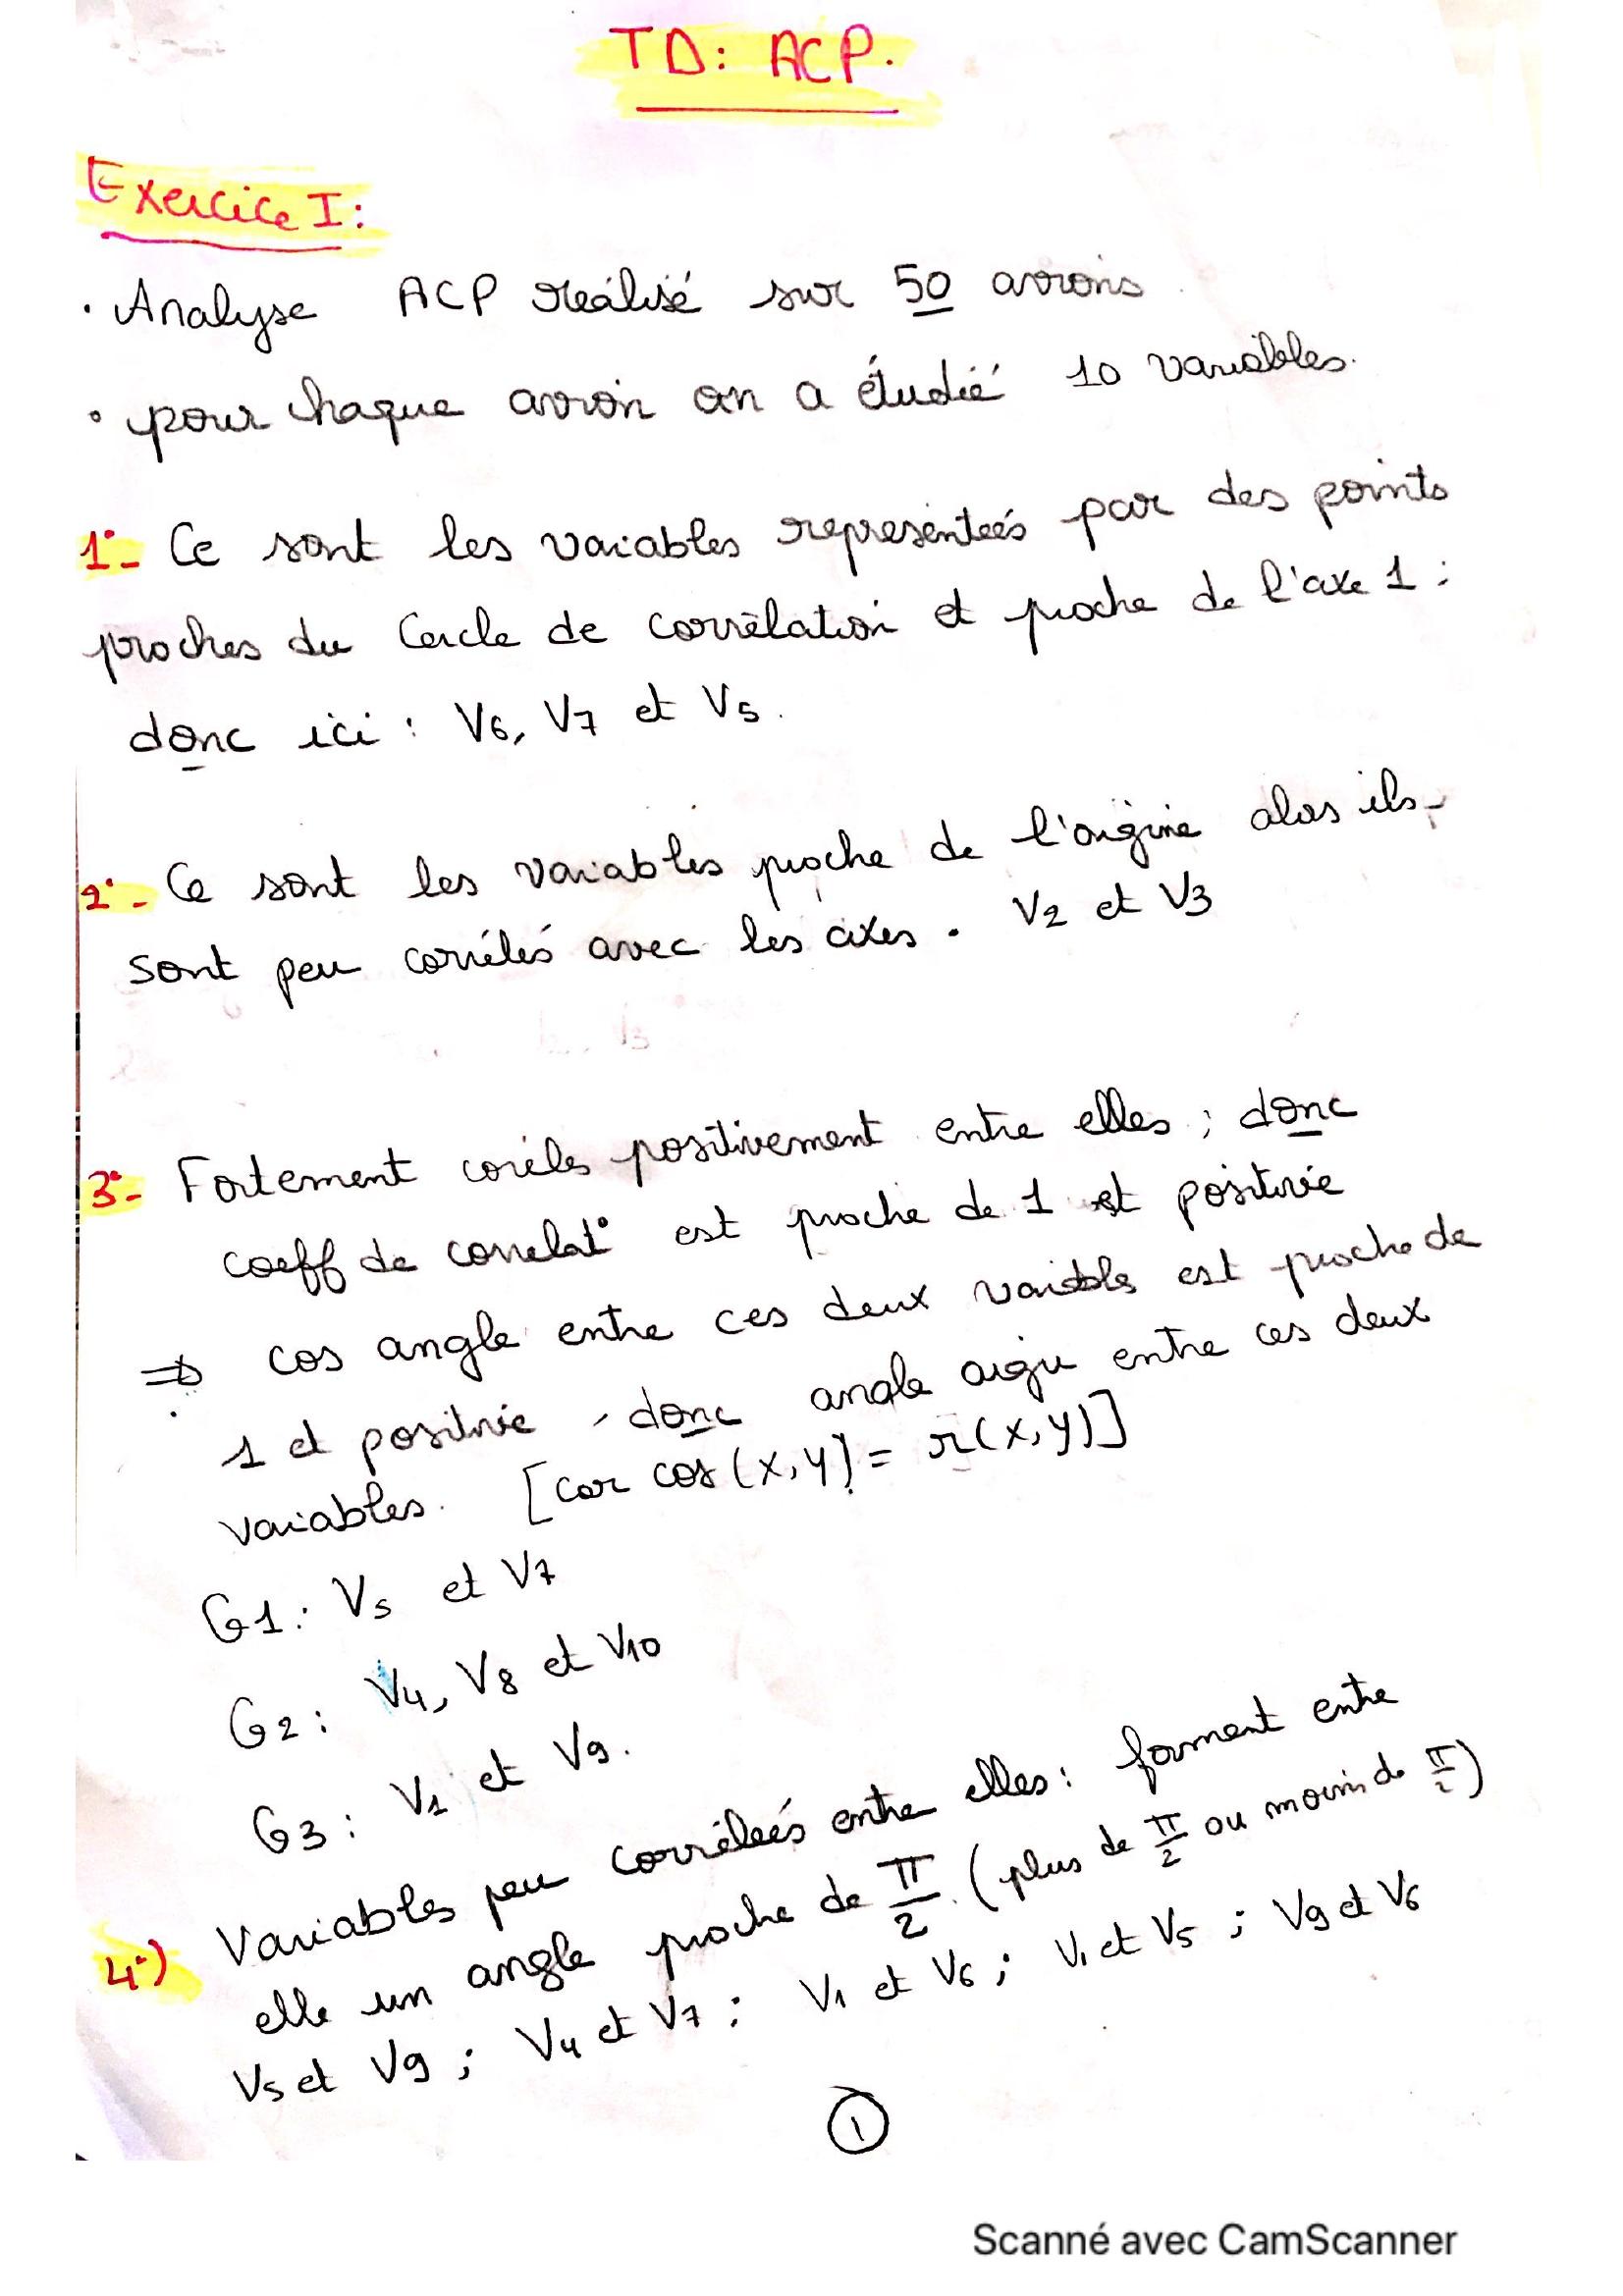 TD: ACP.
Exercice I:
• Analyse ACP réalisé sur 50 avions
• pour chaque avion on a étudié 10 variables.
1°- Ce sont les variables representeés par des points
proches du Cercle de corrélation et proche de l'axe 1 :
donc ici : V6, V7 et V5.
2°- Ce sont les variables proche de l'origine alors ils
sont peu corrélés avec les axes. V2 et V3
3°- Fortement corélés positivement entre elles ; donc
coeff de correlat° est proche de 1 et positivie
⇒ cos angle entre ces deux variable est proche de
1 et positivie, donc angle aigu entre ces deux
variables. [car cos(x,y) = r(x,y)]
G1: V5 et V7
G2: V4, V8 et V10
G3: V1 et V9.
4°) Variables peu corréleés entre elles: forment entre
elle un angle proche de π/2. (plus de π/2 ou moins de π/2)
V5 et V9 ; V4 et V7 ; V1 et V6 ; V1 et V5 ; V9 et V6
1
Scanné avec CamScanner